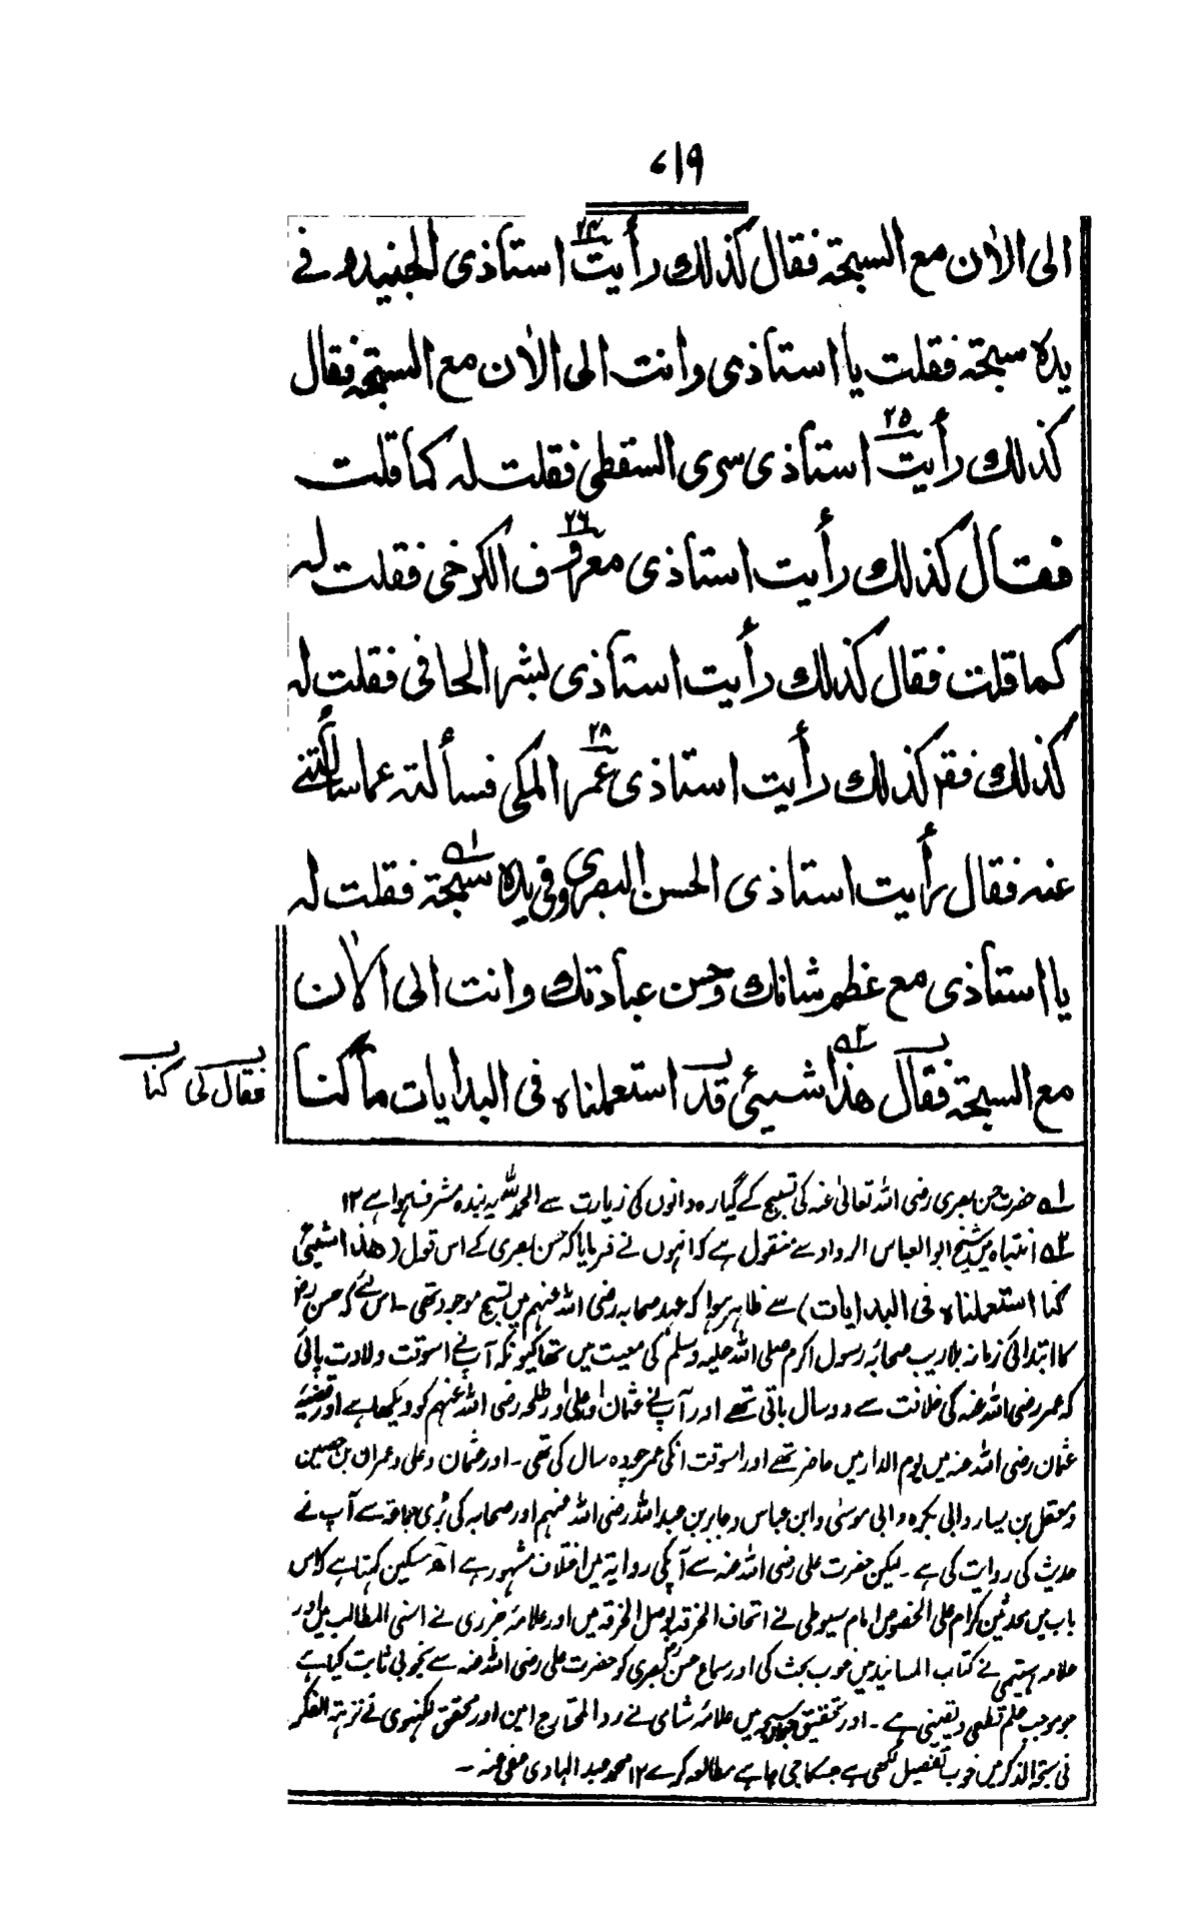 ۷۱۹
الی الاٰن مع السبحۃ فقال کذلک رأیت ۲۴ استاذی الجنید وفی
یدہ سبحۃ فقلت یا استاذی وانت الی الاٰن مع السبحۃ فقال
کذلک رأیت ۲۵ استاذی سری السقطی فقلت لہ کما قلت
فقال کذلک رأیت استاذی معروف ۲۶ الکرخی فقلت لہ
کما قلت فقال کذلک رأیت استاذی بشر الحافی فقلت لہ
کذلک فقال کذلک رأیت استاذی عمر ۲۸ المکی فسألتہ عما سألتنی
عنہ فقال رأیت استاذی الحسن البصری وفی یدہ سبحۃ ؎۱ فقلت لہ
یا استاذی مع عظم شانک وحسن عبادتک وانت الی الاٰن
مع السبحۃ فقال ھذا ؎۲ شیئی قد استعملناہ فی البدایات ما کنا
فقال لی کنا
؎۱ حضرت حسن بصری رضی اللہ تعالیٰ عنہ کی تسبیح کے گیارہ دانوں کی زیارت سے الحمد للہ یہ بندہ مشرف ہوا ہے ۱۲
؎۲ انتباہ میں شیخ ابو العباس الرداد سے منقول ہے کہ انہوں نے فرمایا کہ حسن بصری کے اس قول (ھذا شیئی
کنا استعملناہ فی البدایات) سے ظاہر ہوا کہ عہد صحابہ رضی اللہ عنہم میں تسبیح موجود تھی۔ اس لئے کہ حسن رضؓ
کا ابتدائی زمانہ بلاریب صحابۂ رسول اکرم صلی اللہ علیہ وسلم کی معیت میں تھا کیونکہ آپ نے اسوقت ولادت پائی
کہ عمر رضی اللہ عنہ کی خلافت سے دو سال باقی تھے اور آپ نے عثمان و علی و طلحہ رضی اللہ عنہم کو دیکھا ہے اور قضیۂ
عثمان رضی اللہ عنہ میں یوم الدار میں حاضر تھے اور اسوقت انکی عمر چودہ سال کی تھی۔ اور عثمان و علی و عمران بن حصین
و معقل بن یسار و ابی بکرہ و ابی موسیٰ و ابن عباس و جابر بن عبد اللہ رضی اللہ عنہم اور صحابہ کی بڑی جماعۃ سے آپ نے
حدیث کی روایت کی ہے۔ لیکن حضرت علی رضی اللہ عنہ سے آپکی روایۃ میں اختلاف مشہور ہے اھ مسکین کہتا ہے کہ اس
باب میں محدثین کرام علی الخصوص امام سیوطی نے اتحاف الخرقہ بوصل الخرقہ میں اور علامۂ جزری نے اسنی المطالب میں اور
علامہ ہیتمی نے کتاب المسانید میں خوب بحث کی اور سماع حسن بصری کو حضرت علی رضی اللہ عنہ سے بخوبی ثابت کیا ہے
جو موجب علم قطعی و یقینی ہے۔ اور تحقیق سبحہ میں علامۂ شامی نے رد المحتار ج امین اور محقق لکھنوی نے نزہۃ الفکر
فی سبحۃ الذکر میں خوب تفصیل لکھی ہے جسکا جی چاہے مطالعہ کرے ۱۲ محمد عبد الہادی عفی عنہ ۔